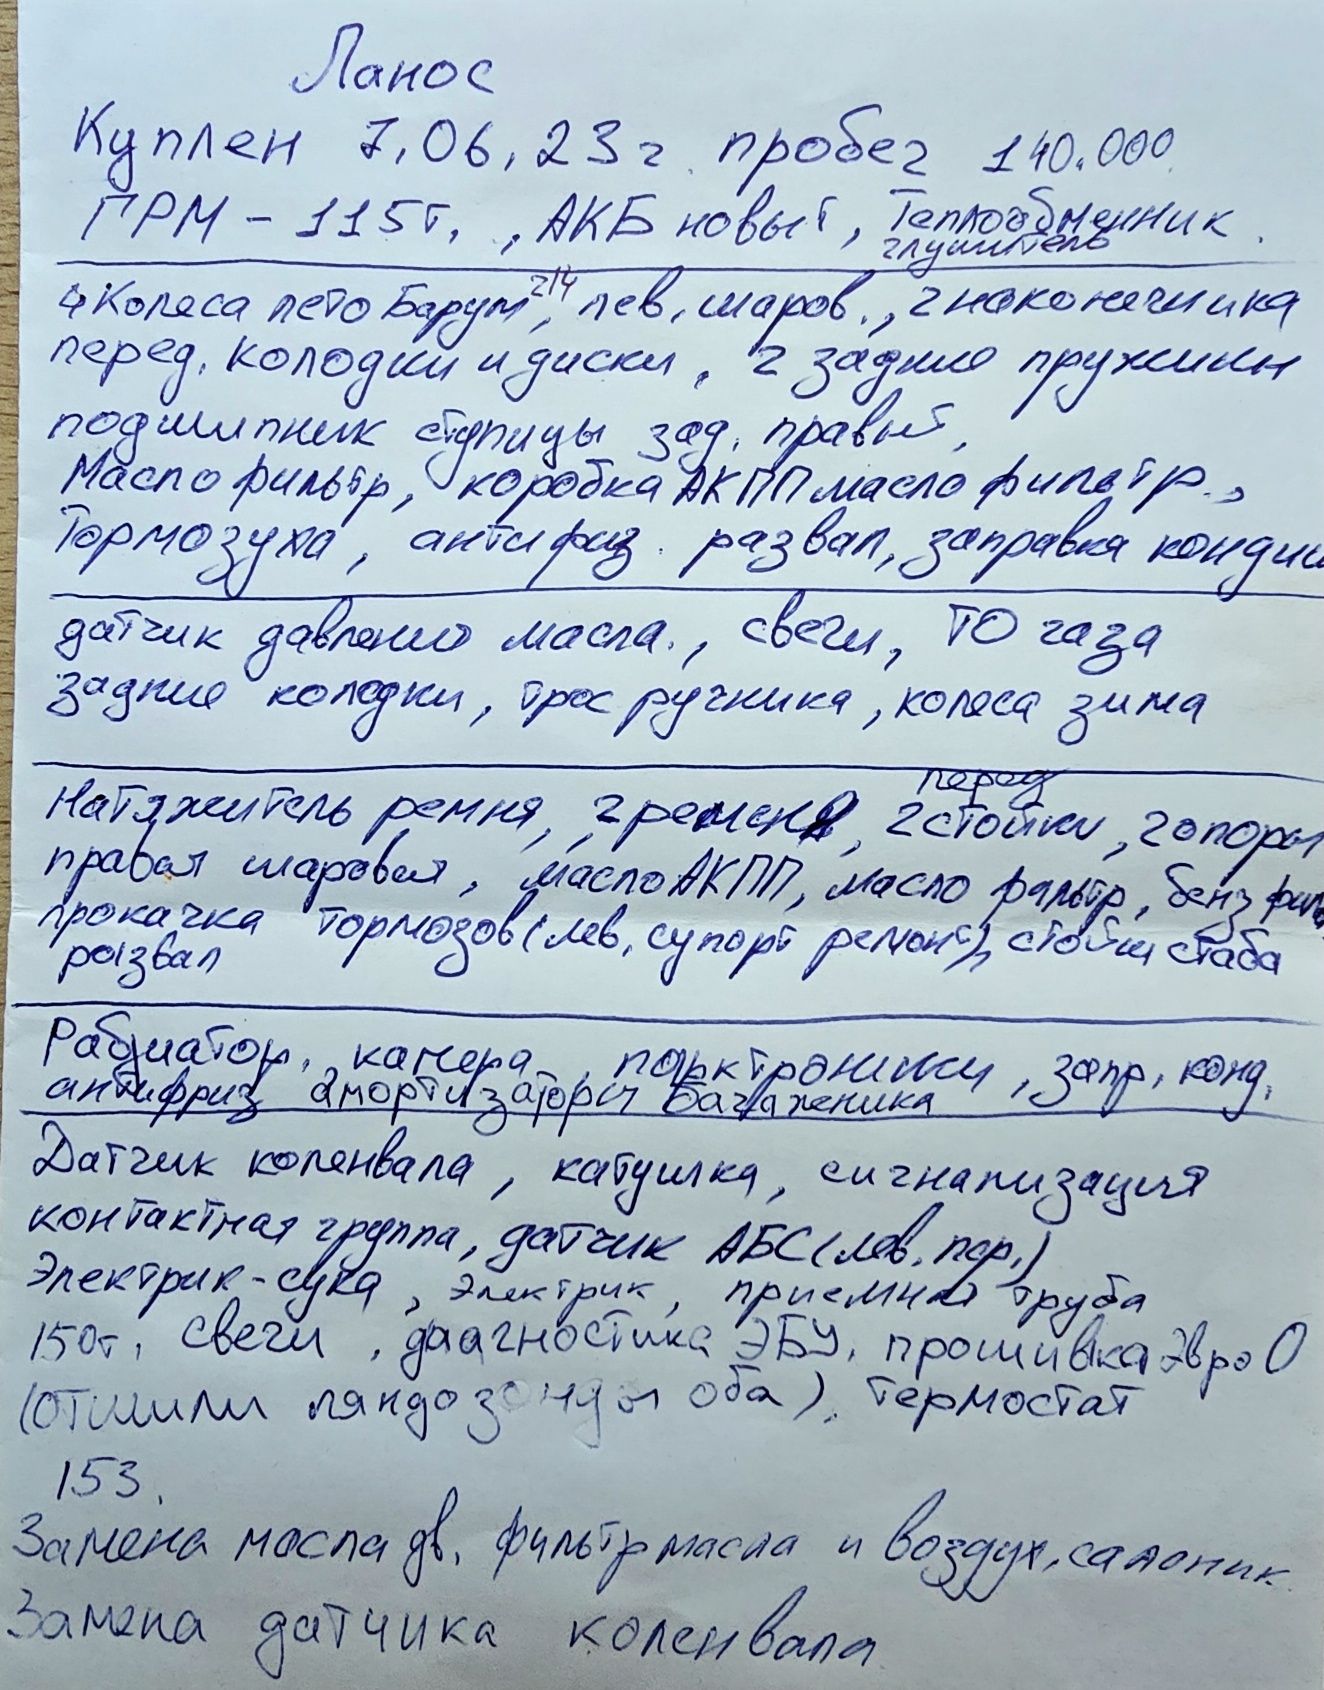 Ланос
Куплен 7.06.23г. пробег 140.000
ГРМ - 115т., АКБ новый, Теплообменник.
глушитель
4 Колеса лето Барум r14, лев. шаров., 2 наконечника
перед. колодки и диски, 2 задние пружины
подшипник ступицы зад. правый,
Масло фильтр, коробка АКПП масло фильтр.,
Тормозуха, антифиз. развал, заправка кондиц
датчик давлению масла., свечи, ТО газа
задние колодки, трос ручника, колеса зима
перед
Натяжитель ремня, 2 ремня, 2 стойки, 2 опоры
правая шаровая, масло АКПП, масло фильтр, бенз фил
прокачка тормозов (лев. супорт ремонт), стойки стаба
развал
Радиатор, камера, парктроники, запр. конд.
антифриз амортизаторы багаженика
Датчик коленвала, катушка, сигнализация
контактная группа, датчик АБС (лев. пер.)
Электрик-сука, электрик, приемная труба
150т. свечи, диагностика ЭБУ, прошивка Эвро 0
(отшили ляндозонды оба). термостат
153.
Замена масла дв. фильтр масла и воздух, салоник.
Замена датчика коленвала